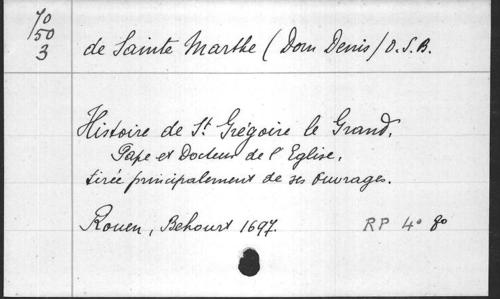 70
50
3
de Sainte Marthe (Dom Denis) O.S.B.
Histoire de St Grégoire le Grand,
Pape et Docteur de l'Eglise,
tirée principalement de ses Ouvrages.
Rouen, Behourt 1697. RP 4° 80